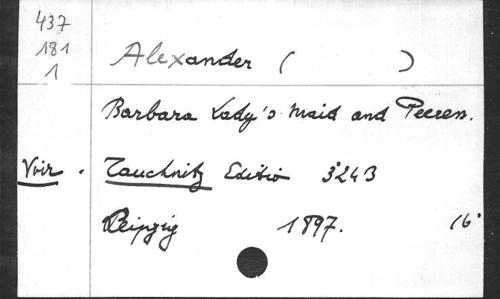 437
181
1
Alexander ( )
Barbara Lady's Maid and Peeress.
Voir. Tauchnitz Editio 3243
Leipzig 1897. 16°